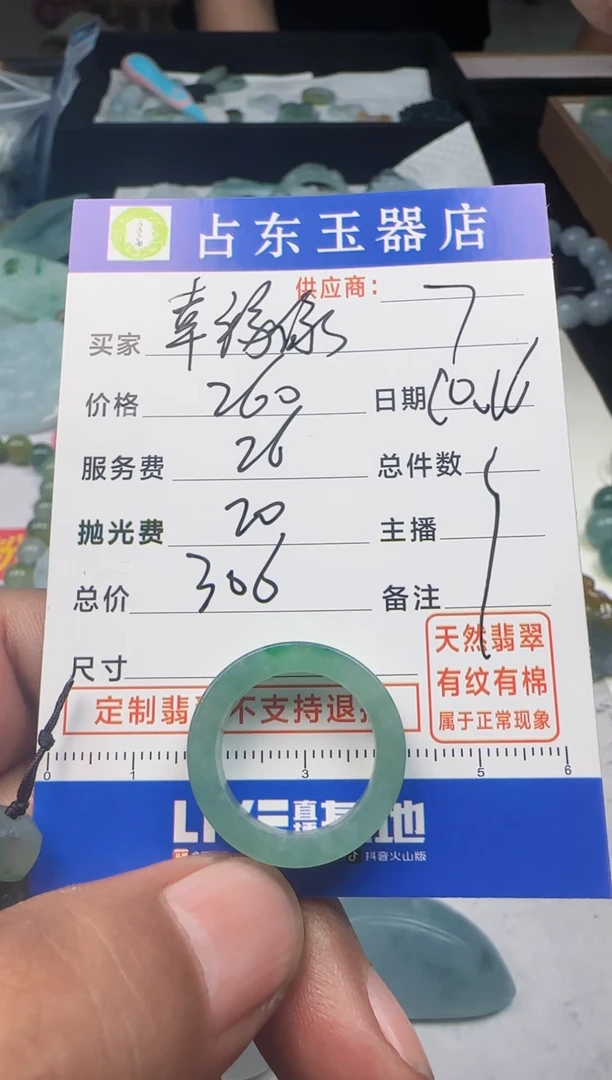 占东玉器店
供应商： 7
买家
价格 260 日期 10.16
服务费 26 总件数
抛光费 20 主播
总价 306 备注
尺寸
天然翡翠
有纹有棉
属于正常现象
定制翡 不支持退
0 1 3 5 6
直播
地
抖音火山版